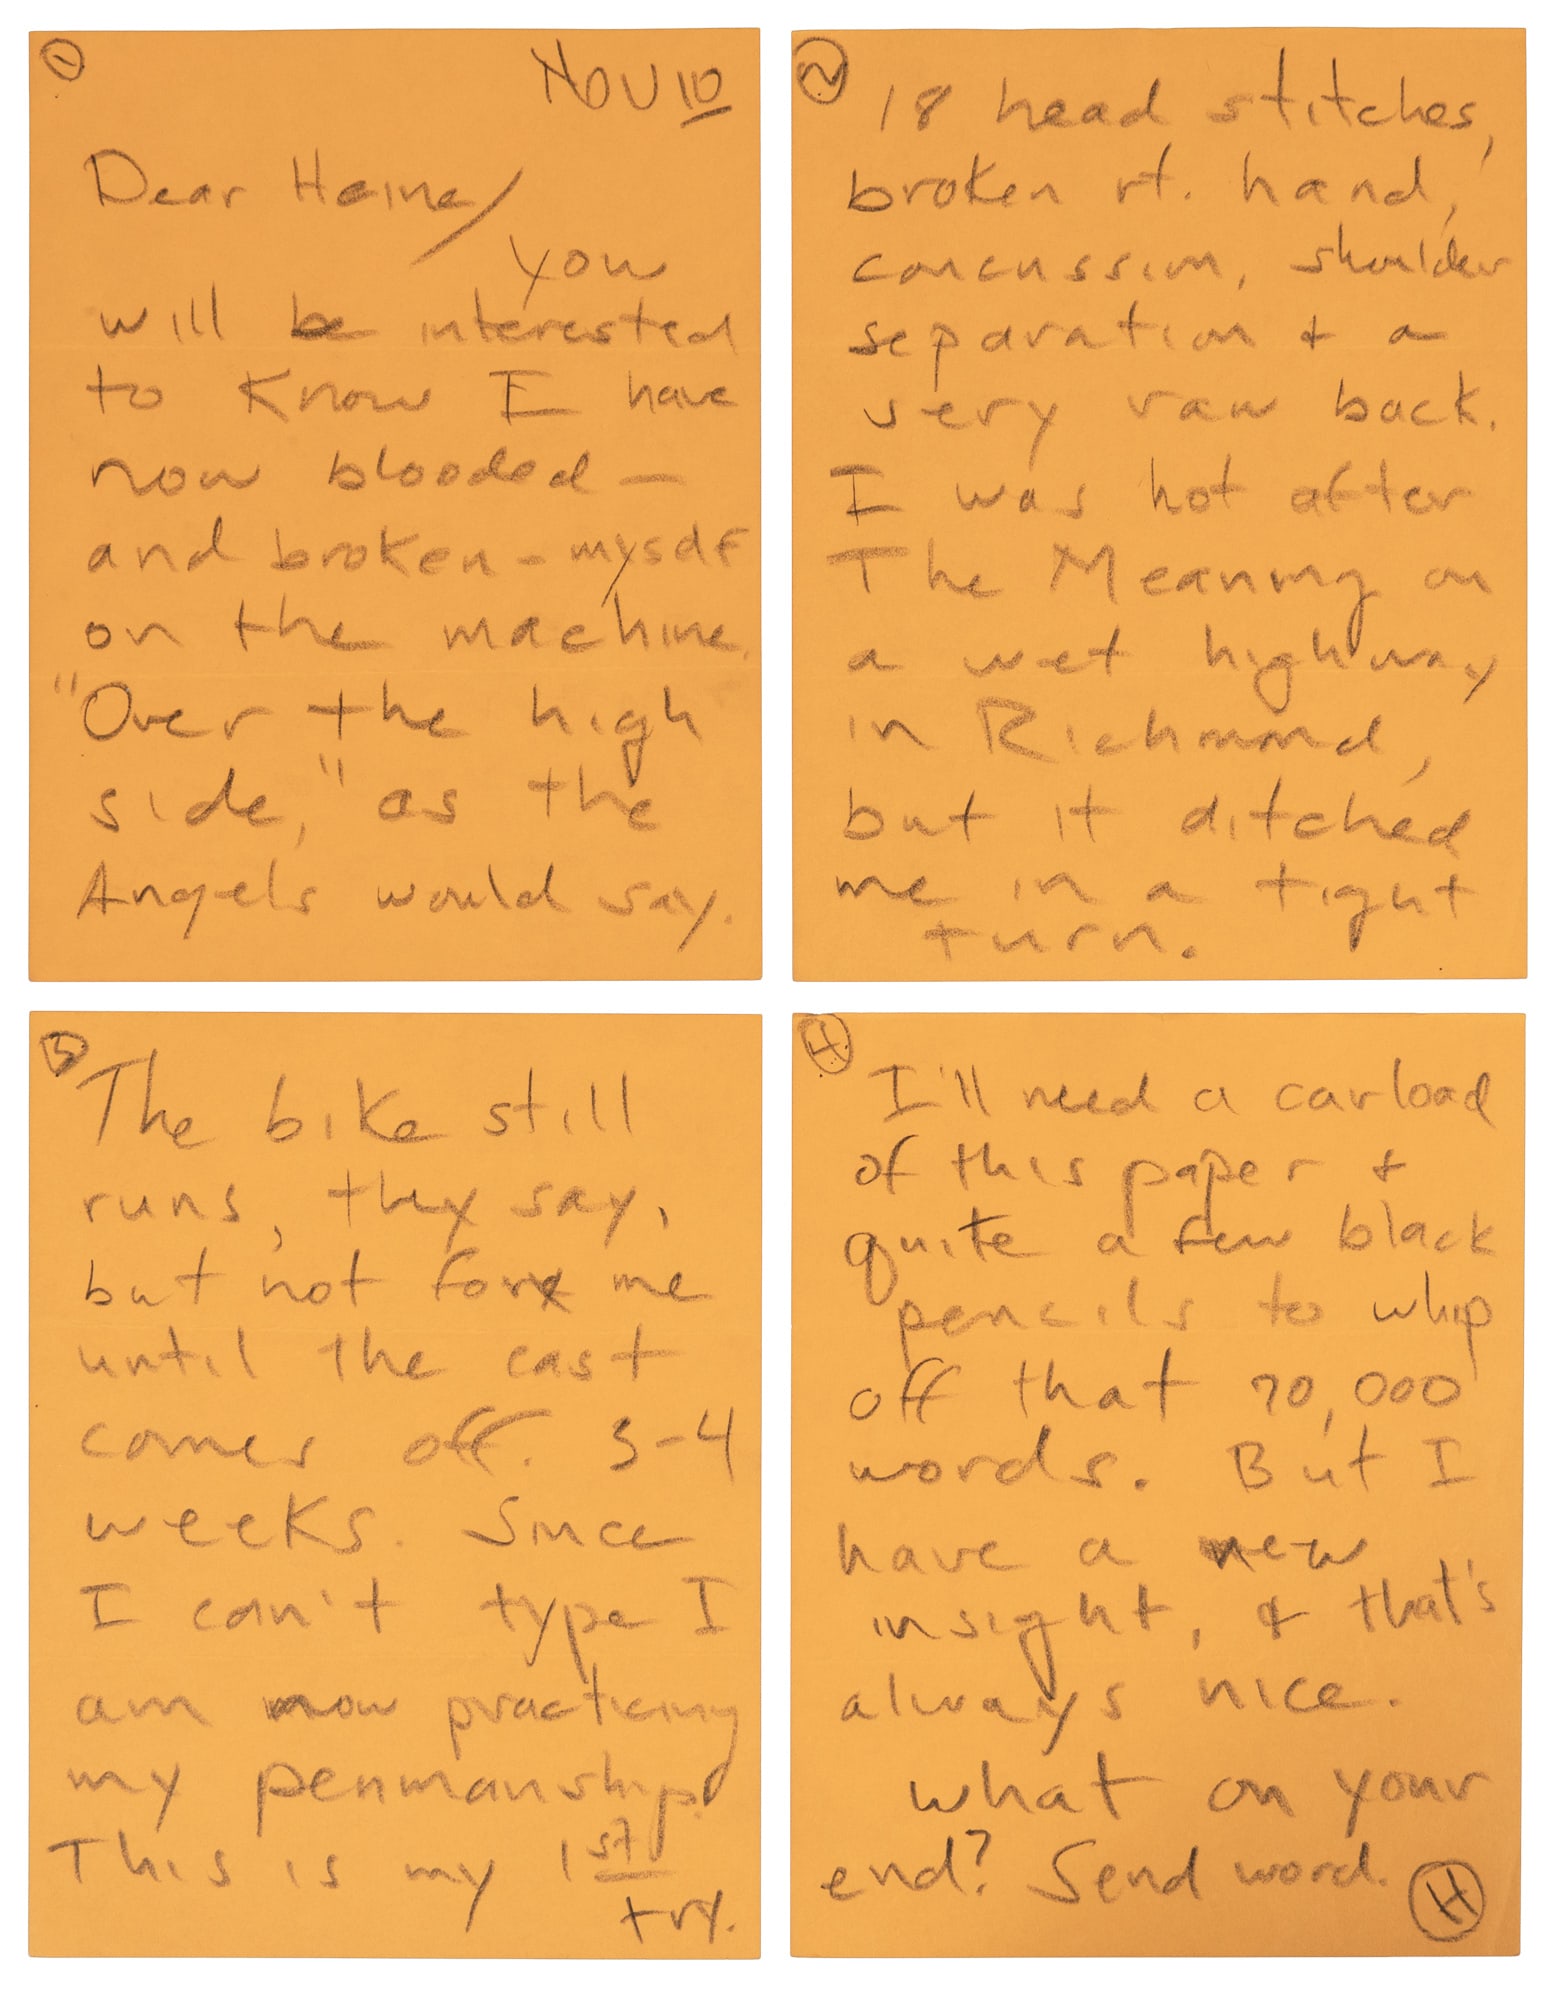 1
NOV 10
Dear Heine/
you
will be interested
to Know I have
now blooded —
and broken - myself
on the machine.
"Over the high
side," as the
Angels would say.
2
18 head stitches,
broken rt. hand,
concussion, shoulder
separation + a
very raw back.
I was hot after
The Meaning on
a wet highway
in Richmond,
but it ditched
me in a tight
turn.
3
The bike still
runs, they say,
but not for me
until the cast
comes off. 3-4
weeks. Since
I can't type I
am now practicing
my penmanship.
This is my 1st
try.
4
I'll need a carload
of this paper +
quite a few black
pencils to whip
off that 70,000
words. But I
have a new
insight, & that's
always nice.
what on your
end? Send word.
H